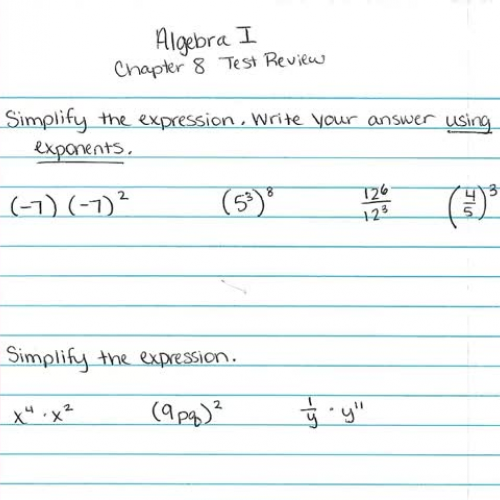 Algebra I
Chapter 8 Test Review
Simplify the expression. Write your answer using
exponents.
(-7) (-7)² (5³)⁸ 12⁶/12³ (4/5)³
Simplify the expression.
x⁴ · x² (9pq)² 1/y · y¹¹